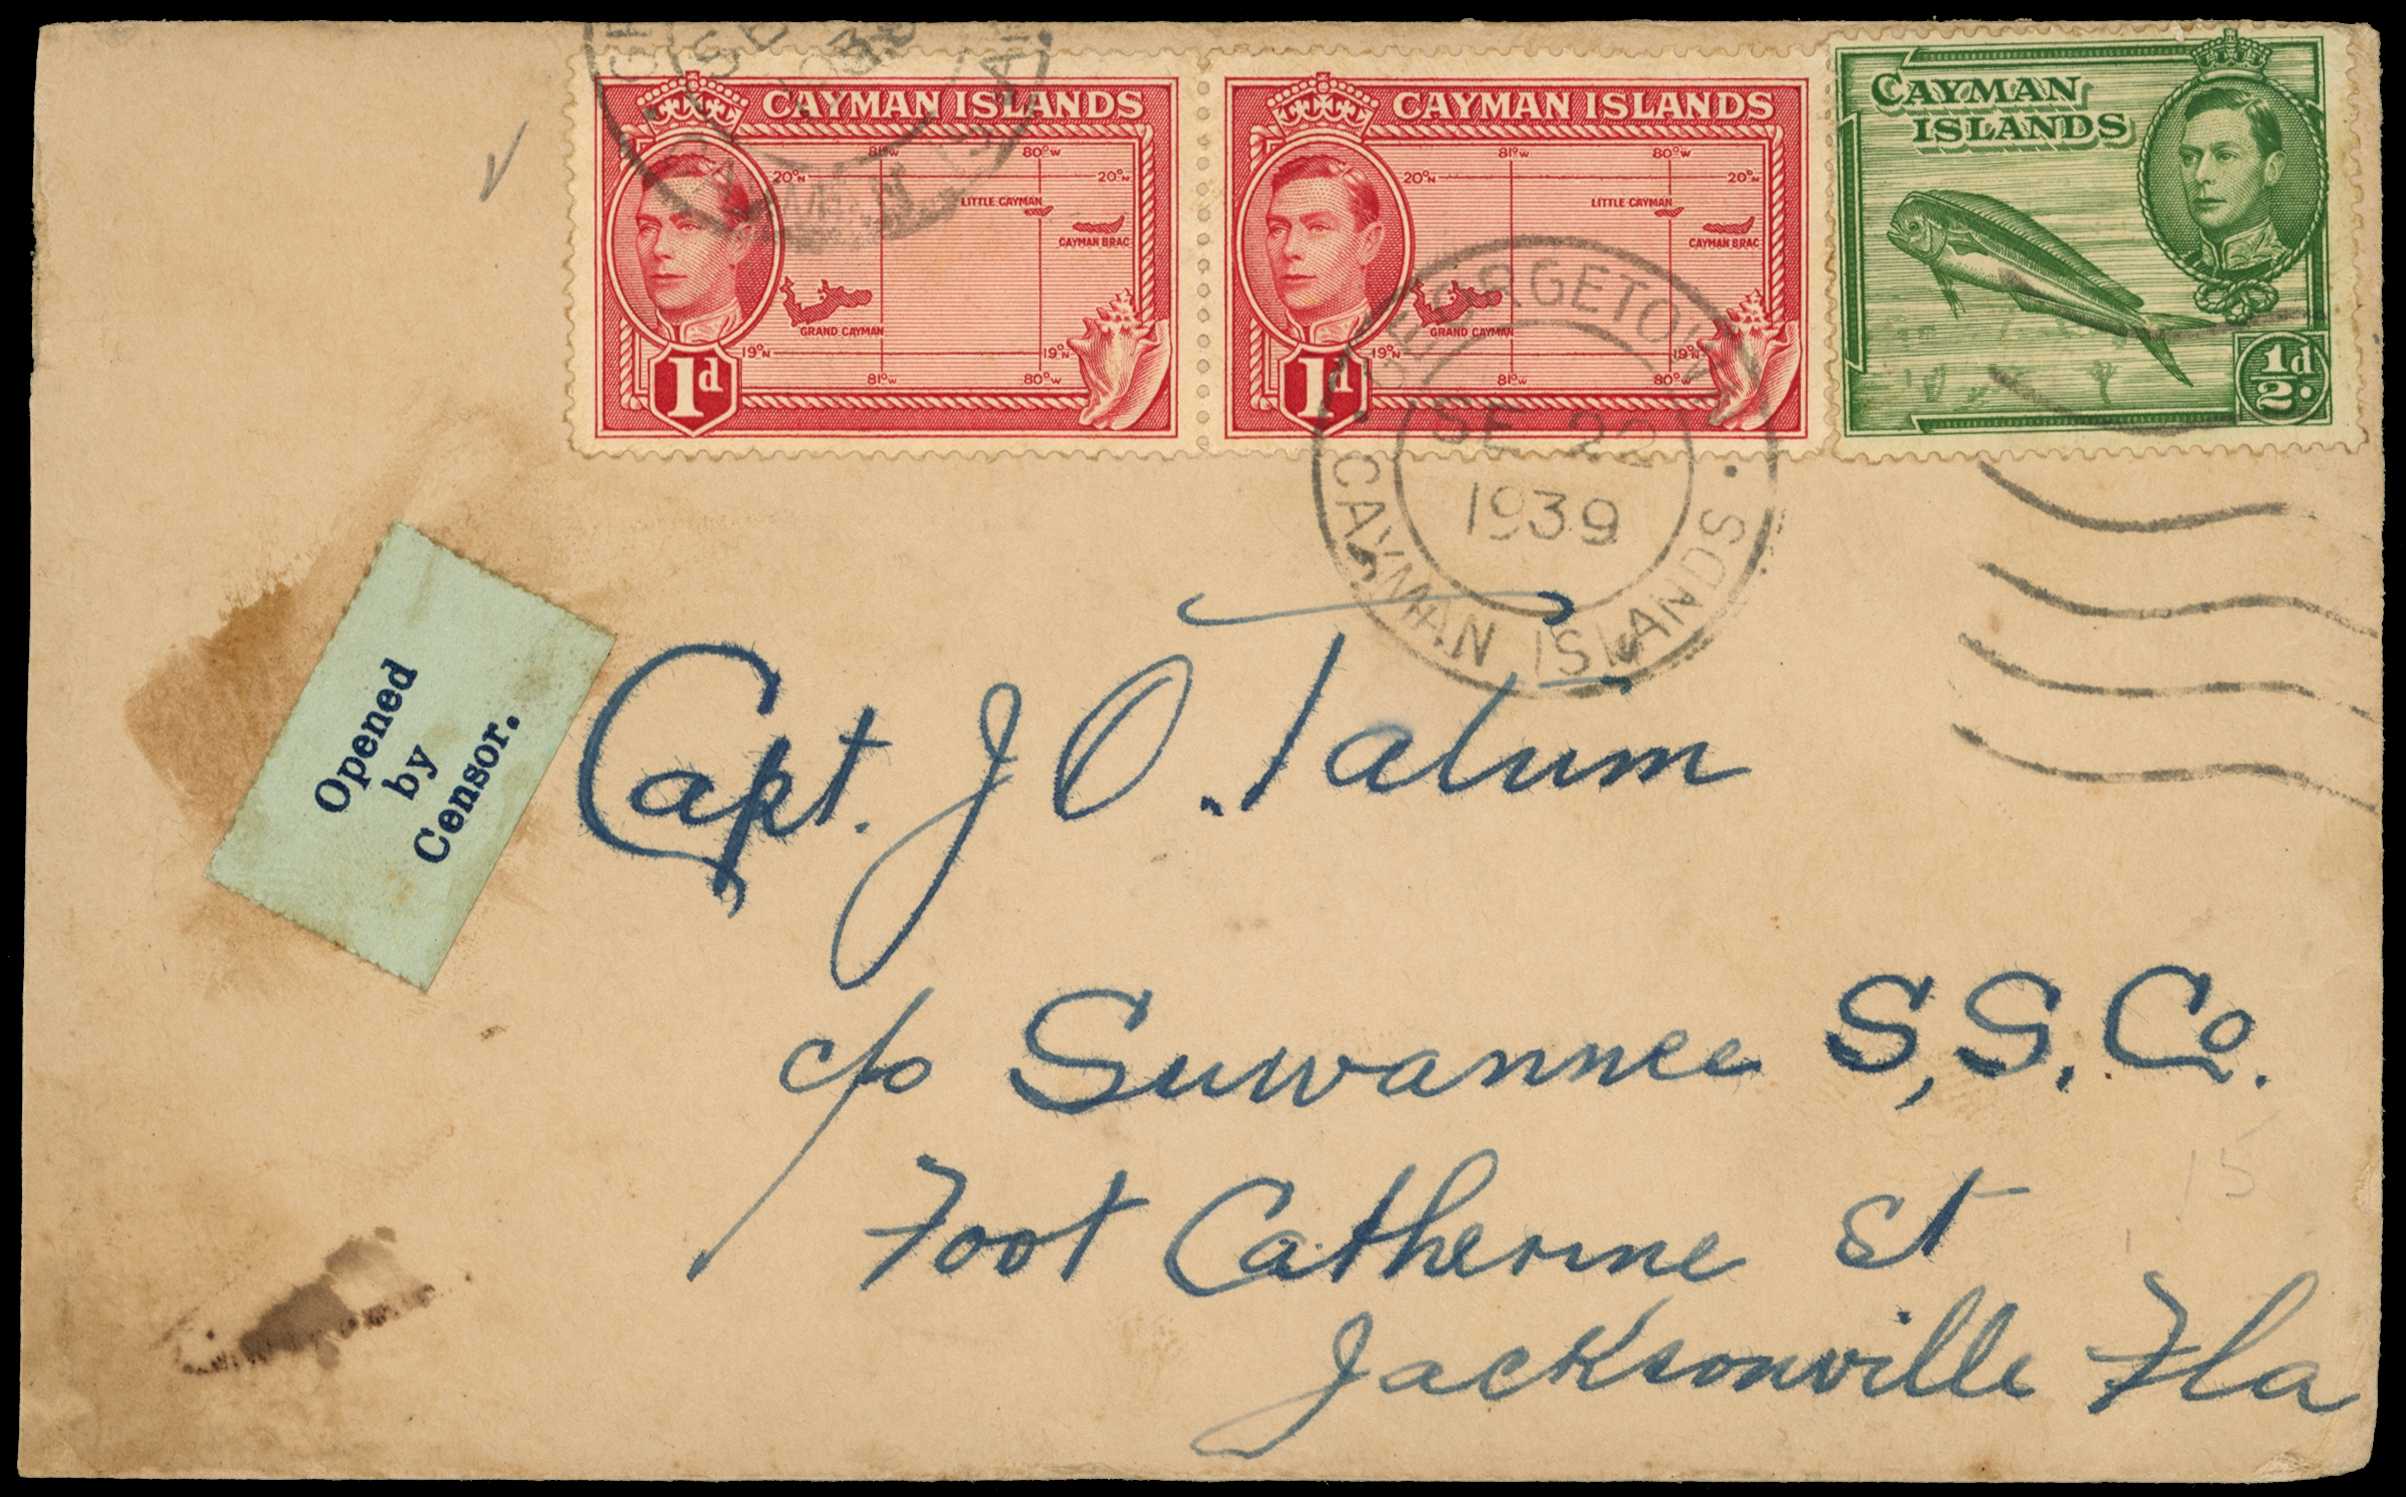 CAYMAN ISLANDS
81°W 80°W
20°N 20°N
LITTLE CAYMAN
CAYMAN BRAC
GRAND CAYMAN
19°N 19°N
81°W 80°W
1d
CAYMAN ISLANDS
81°W 80°W
20°N 20°N
LITTLE CAYMAN
CAYMAN BRAC
GRAND CAYMAN
19°N 19°N
81°W 80°W
1d
CAYMAN
ISLANDS
1/2d.
GEORGETOWN
SE 22
1939
CAYMAN ISLANDS
Opened
by
Censor.
Capt. J O. Tatum
c/o Suwannee S.S. Co.
Foot Catherine St
Jacksonville Fla
15